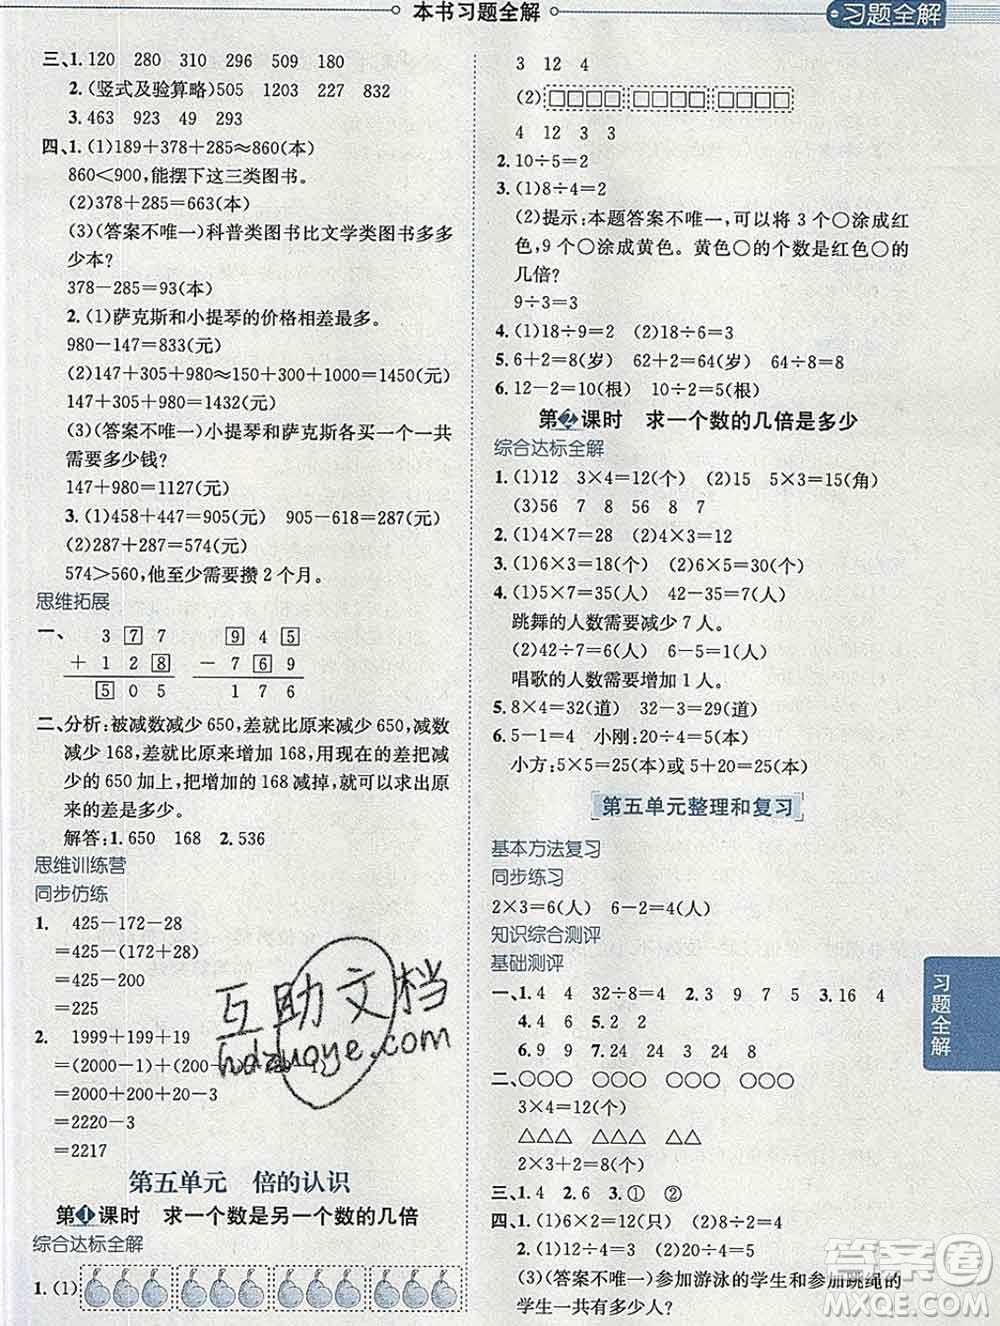 本书习题全解
习题全解
三、1. 120 280 310 296 509 180
2. (竖式及验算略)505 1203 227 832
3. 463 923 49 293
四、1. (1)189+378+285≈860(本)
860<900,能摆下这三类图书。
(2)378+285=663(本)
(3)(答案不唯一)科普类图书比文学类图书多多
少本?
378-285=93(本)
2. (1)萨克斯和小提琴的价格相差最多。
980-147=833(元)
(2)147+305+980≈150+300+1000=1450(元)
147+305+980=1432(元)
(3)(答案不唯一)小提琴和萨克斯各买一个一共
需要多少钱?
147+980=1127(元)
3. (1)458+447=905(元) 905-618=287(元)
(2)287+287=574(元)
574>560,他至少需要攒 2 个月。
思维拓展
一、 3 7 7 9 4 5
+ 1 2 8 - 7 6 9
5 0 5 1 7 6
二、分析:被减数减少 650,差就比原来减少 650,减数
减少 168,差就比原来增加 168,用现在的差把减
少的 650 加上,把增加的 168 减掉,就可以求出原
来的差是多少。
解答:1. 650 168 2. 536
思维训练营
同步仿练
1. 425-172-28
=425-(172+28)
=425-200
=225
2. 1999+199+19
=(2000-1)+(200-1)+(20-1)
=2000+200+20-3
=2220-3
=2217
第五单元 倍的认识
第1课时 求一个数是另一个数的几倍
综合达标全解
1. (1)
3 12 4
(2)□□□□ □□□□ □□□□
4 12 3 3
2. 10÷5=2
3. (1)8÷4=2
(2)提示:本题答案不唯一,可以将 3 个○涂成红
色,9 个○涂成黄色。黄色○的个数是红色○的
几倍?
9÷3=3
4. (1)18÷9=2 (2)18÷6=3
5. 6+2=8(岁) 62+2=64(岁) 64÷8=8
6. 12-2=10(根) 10÷2=5(根)
第2课时 求一个数的几倍是多少
综合达标全解
1. (1)12 3×4=12(个) (2)15 5×3=15(角)
(3)56 7 8 56 8 7
2. (1)4×7=28 (2)4×3=12
3. (1)6×3=18(个) (2)6×5=30(个)
4. (1)5×7=35(人) 42-35=7(人)
跳舞的人数需要减少 7 人。
(2)42÷7=6(人) 6-5=1(人)
唱歌的人数需要增加 1 人。
5. 8×4=32(道) 32-3=29(道)
6. 5-1=4 小刚:20÷4=5(本)
小方:5×5=25(本)或 5+20=25(本)
第五单元整理和复习
基本方法复习
同步练习
2×3=6(人) 6-2=4(人)
知识综合测评
基础测评
一、1. 4 4 32÷8=4 2. 3 9 7 5 3. 16 4
4. 4 6 5. 2 2
6. 9 9 7. 24 24 3 24 8
二、○○○ ○○○ ○○○ ○○○ ○○○
3×4=12(个)
△△△ △△△ △△
2×3+2=8(个)
三、1. 4 2. 6 3. ① ②
四、1. (1)6×2=12(只) (2)8÷2=4
2. (1)12÷4=3 (2)20÷4=5
(3)(答案不唯一)参加游泳的学生和参加跳绳的
学生一共有多少人?
习题全解
互助文档
hdzuoye.com
答案圈
MXQE.COM